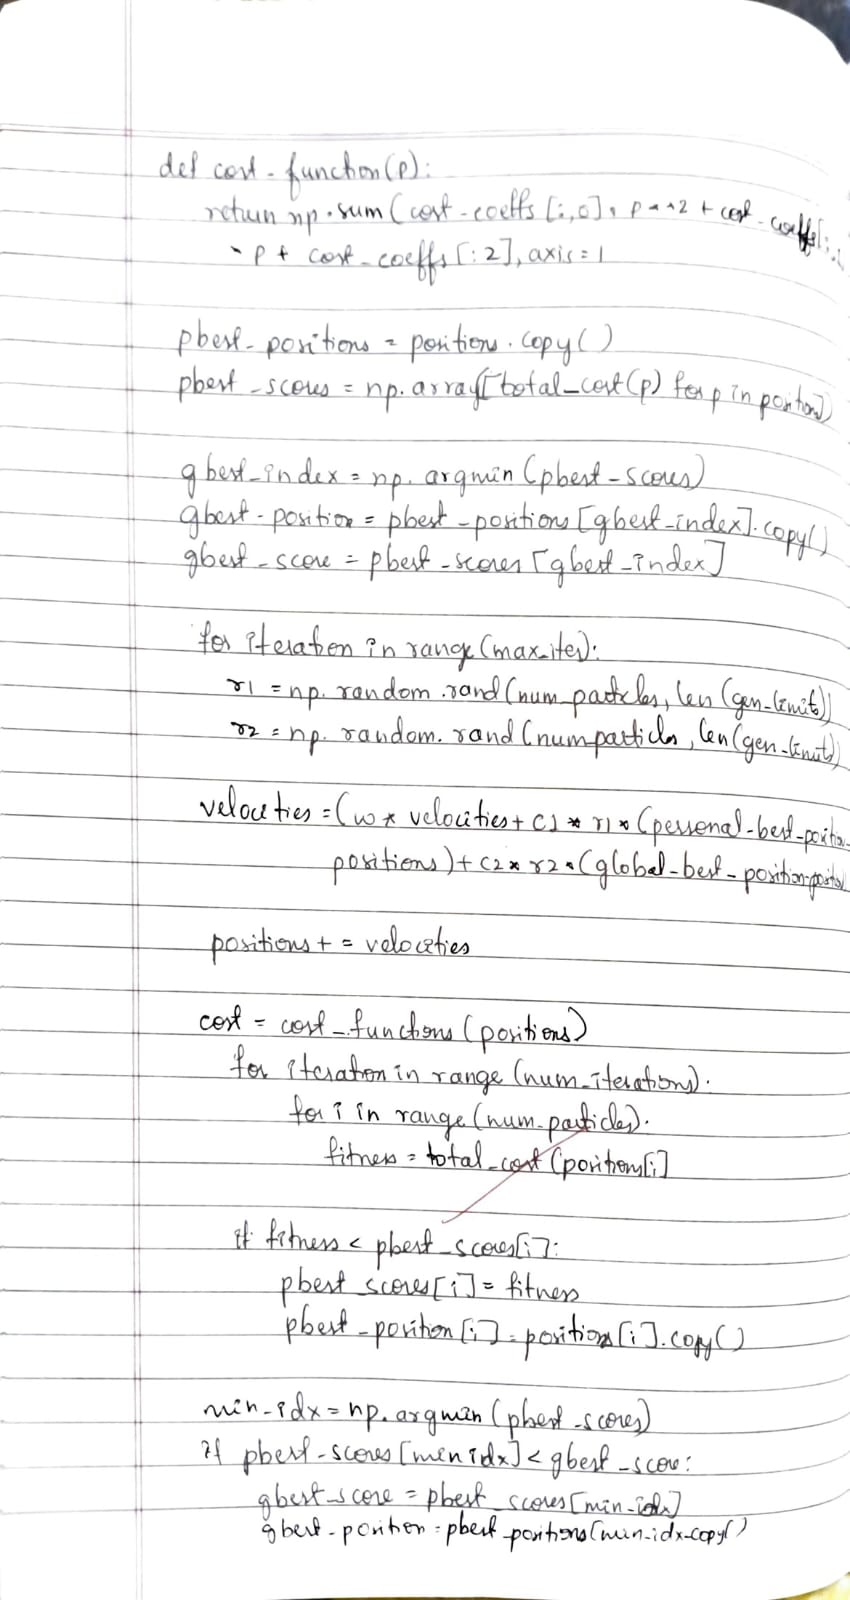 def cost-function(p):
return np.sum(cost-coeffs[:,0]* p**2 + cost-coeffs[:,
* p + cost-coeffs[:2], axis=1
pbest-positions = positions.copy()
pbest-scores = np.array[total-cost(p) for p in position])
gbest-index = np.argmin(pbest-scores)
gbest-position = pbest-positions[gbest-index].copy()
gbest-score = pbest-scores[gbest-index]
for iteration in range(max-iter):
r1 = np.random.rand(num_particles, len(gen-limits))
r2 = np.random.rand(numparticles, len(gen-limits)
velocities = (w * velocities + c1 * r1 * (personal-best-position-
positions) + c2 * r2 * (global-best-position-
positions += velocities
cost = cost-functions(positions)
for iteration in range(num-iterations).
for i in range(num-particles).
fitness = total-cost(positions[i]
if fitness < pbest-scores[i]:
pbest scores[i] = fitness
pbest-position[i] = positions[i].copy()
min-idx = np.argmin(pbest-scores)
if pbest-scores[min idx] < gbest-score:
gbest-score = pbest scores[min-idx]
gbest-position = pbest positions(min-idx-copy()